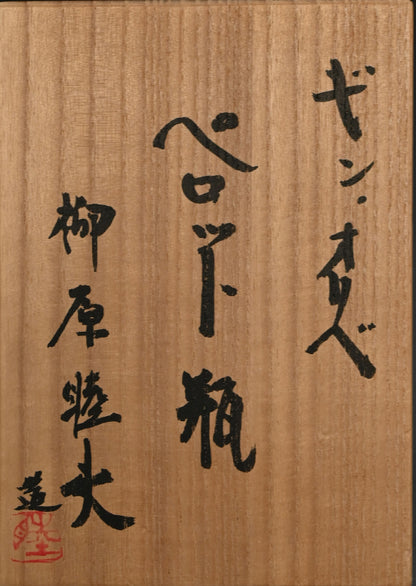 ギン・オリベ
ペロット瓶
柳原睦夫
造
睦